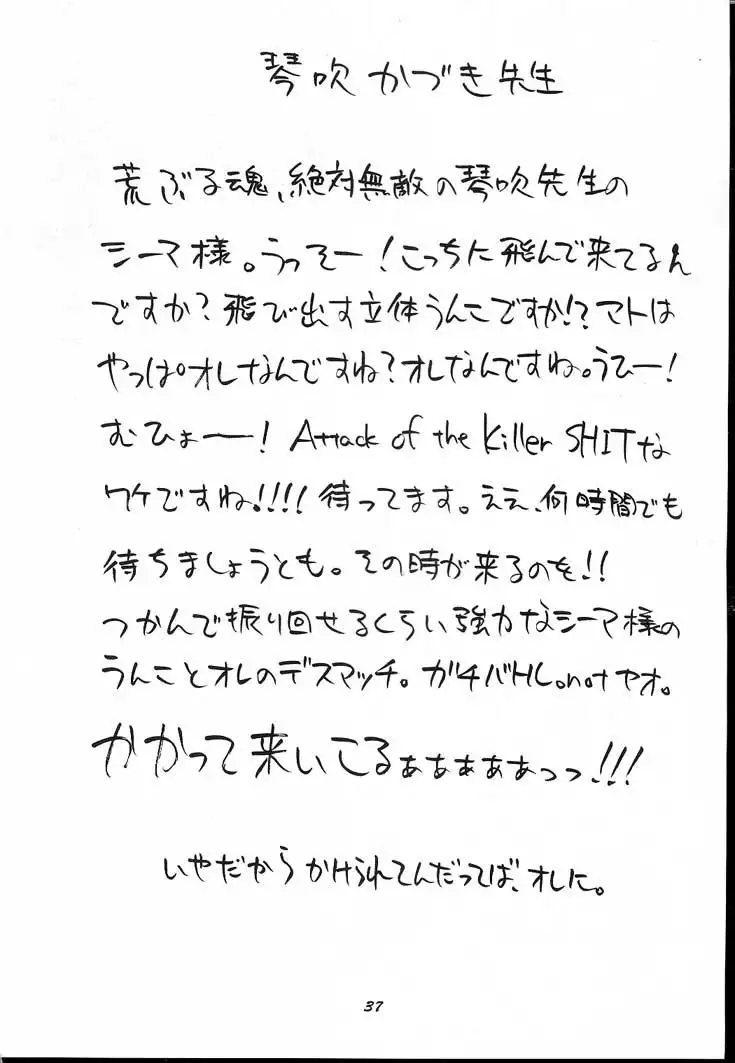 琴吹かづき先生
荒ぶる魂、絶対無敵の琴吹先生の
シーマ様。うっそー!こっちに飛んで来てるん
ですか?飛び出す立体うんこですか!?マトは
やっぱオレなんですね?オレなんですね。うひー!
むひょーー! Attack of the Killer SHITな
ワケですね!!!!待ってます。ええ、何時間でも
待ちましょうとも。その時が来るのを!!
つかんで振り回せるくらい強力なシーマ様の
うんことオレのデスマッチ。ガチバトル。notヤオ。
かかって来いこるぁぁぁぁぁっっ!!!
いやだからかけられてんだってば、オレに。
37